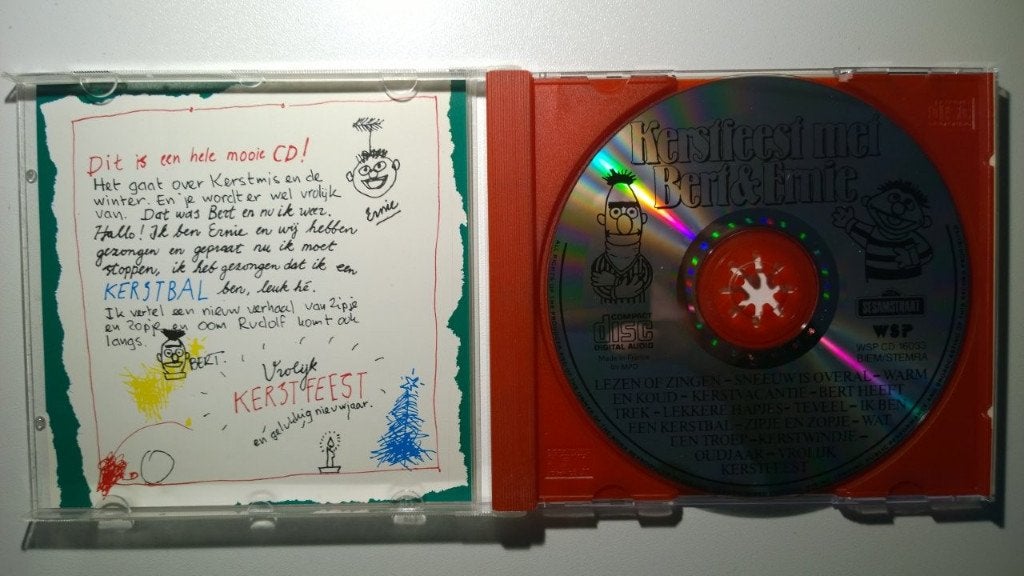 Dit is een hele mooie CD!
Het gaat over Kerstmis en de
winter. En je wordt er wel vrolijk
van. Dat was Bert en nu ik weer.
Hallo! Ik ben Ernie en wij hebben
gezongen en gepraat nu ik moet
stoppen, ik heb gezongen dat ik een
KERSTBAL ben, leuk hé.
Ik vertel een nieuw verhaal van Zipje
en Zopje en Oom Rudolf komt ook
langs.
Ernie
BERT.
Vrolijk
KERSTFEEST
en gelukkig nieuwjaar.
Kerstfeest met
Bert & Ernie
SESAMSTRAAT
COMPACT
disc
DIGITAL AUDIO
Made in France
by MPO
WSP
WSP CD 16033
BIEM/STEMRA
LEZEN OF ZINGEN – SNEEUW IS OVERAL – WARM
EN KOUD – KERSTVACANTIE – BERT HEEFT
TREK – LEKKERE HAPJES – TEVEEL – IK BEN
EEN KERSTBAL – ZIPJE EN ZOPJE – WAT
EEN TROEP – KERSTWINDJE –
OUDJAAR – VROLIJK
KERSTFEEST